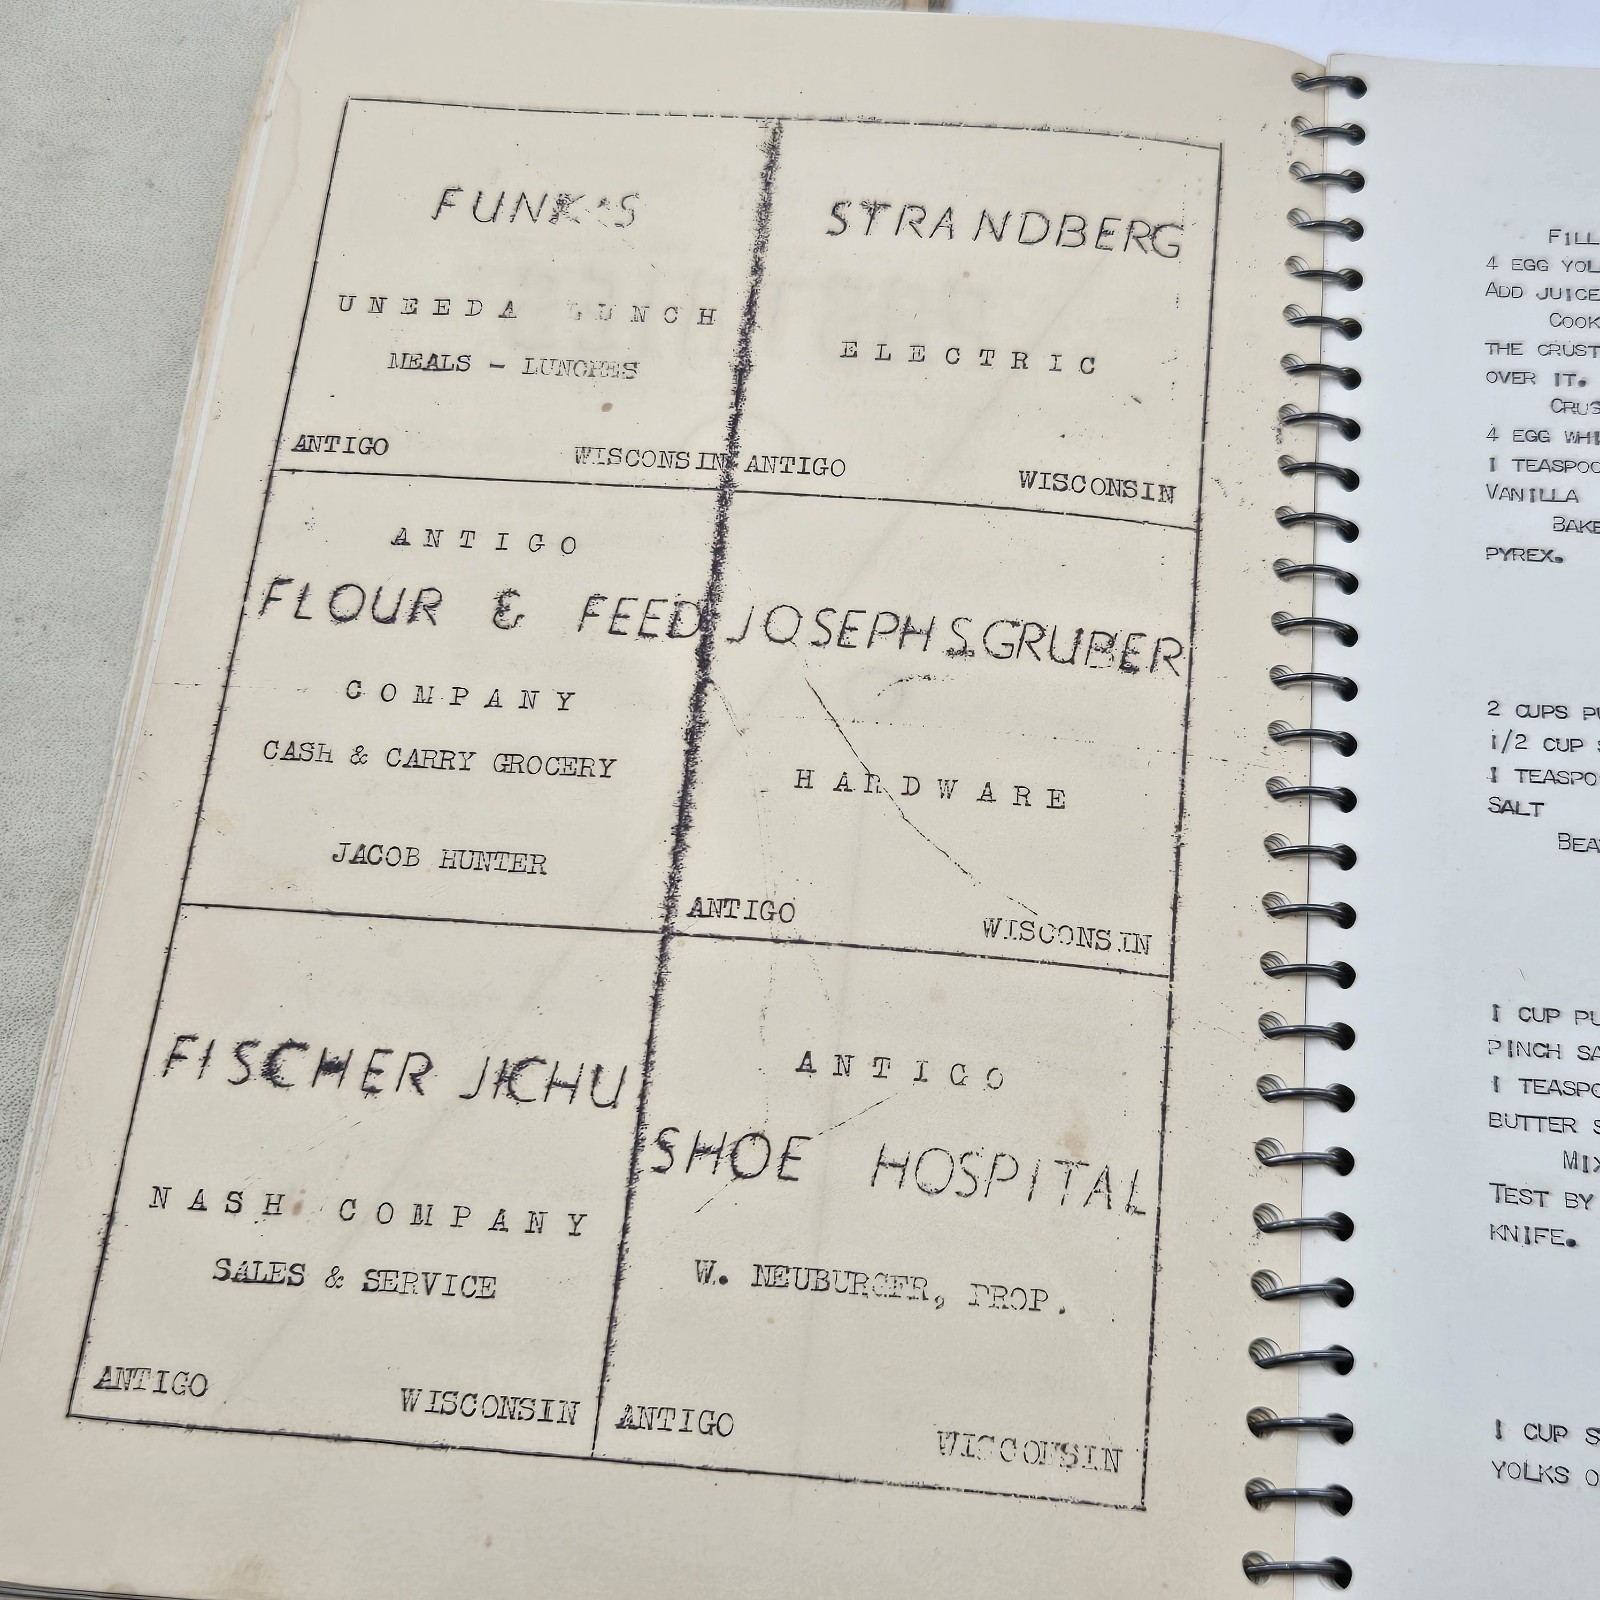 FUNK'S
UNEEDA LUNCH
MEALS - LUNCHES
ANTIGO WISCONSIN
STRANDBERG
ELECTRIC
ANTIGO WISCONSIN
ANTIGO
FLOUR & FEED
COMPANY
CASH & CARRY GROCERY
JACOB HUNTER
JOSEPH S. GRUBER
HARDWARE
ANTIGO WISCONSIN
FISCHER JICHU
NASH COMPANY
SALES & SERVICE
ANTIGO WISCONSIN
ANTIGO
SHOE HOSPITAL
W. NEUBURGER, PROP.
ANTIGO WISCONSIN
FILL
4 EGG YOL
ADD JUICE
COOK
THE CRUST
OVER IT.
CRUS
4 EGG WHI
1 TEASPOO
VANILLA
BAKE
PYREX.
2 CUPS PU
1/2 CUP S
1 TEASPO
SALT
BEA
1 CUP PU
PINCH SA
1 TEASPO
BUTTER S
MIX
TEST BY
KNIFE.
1 CUP S
YOLKS O